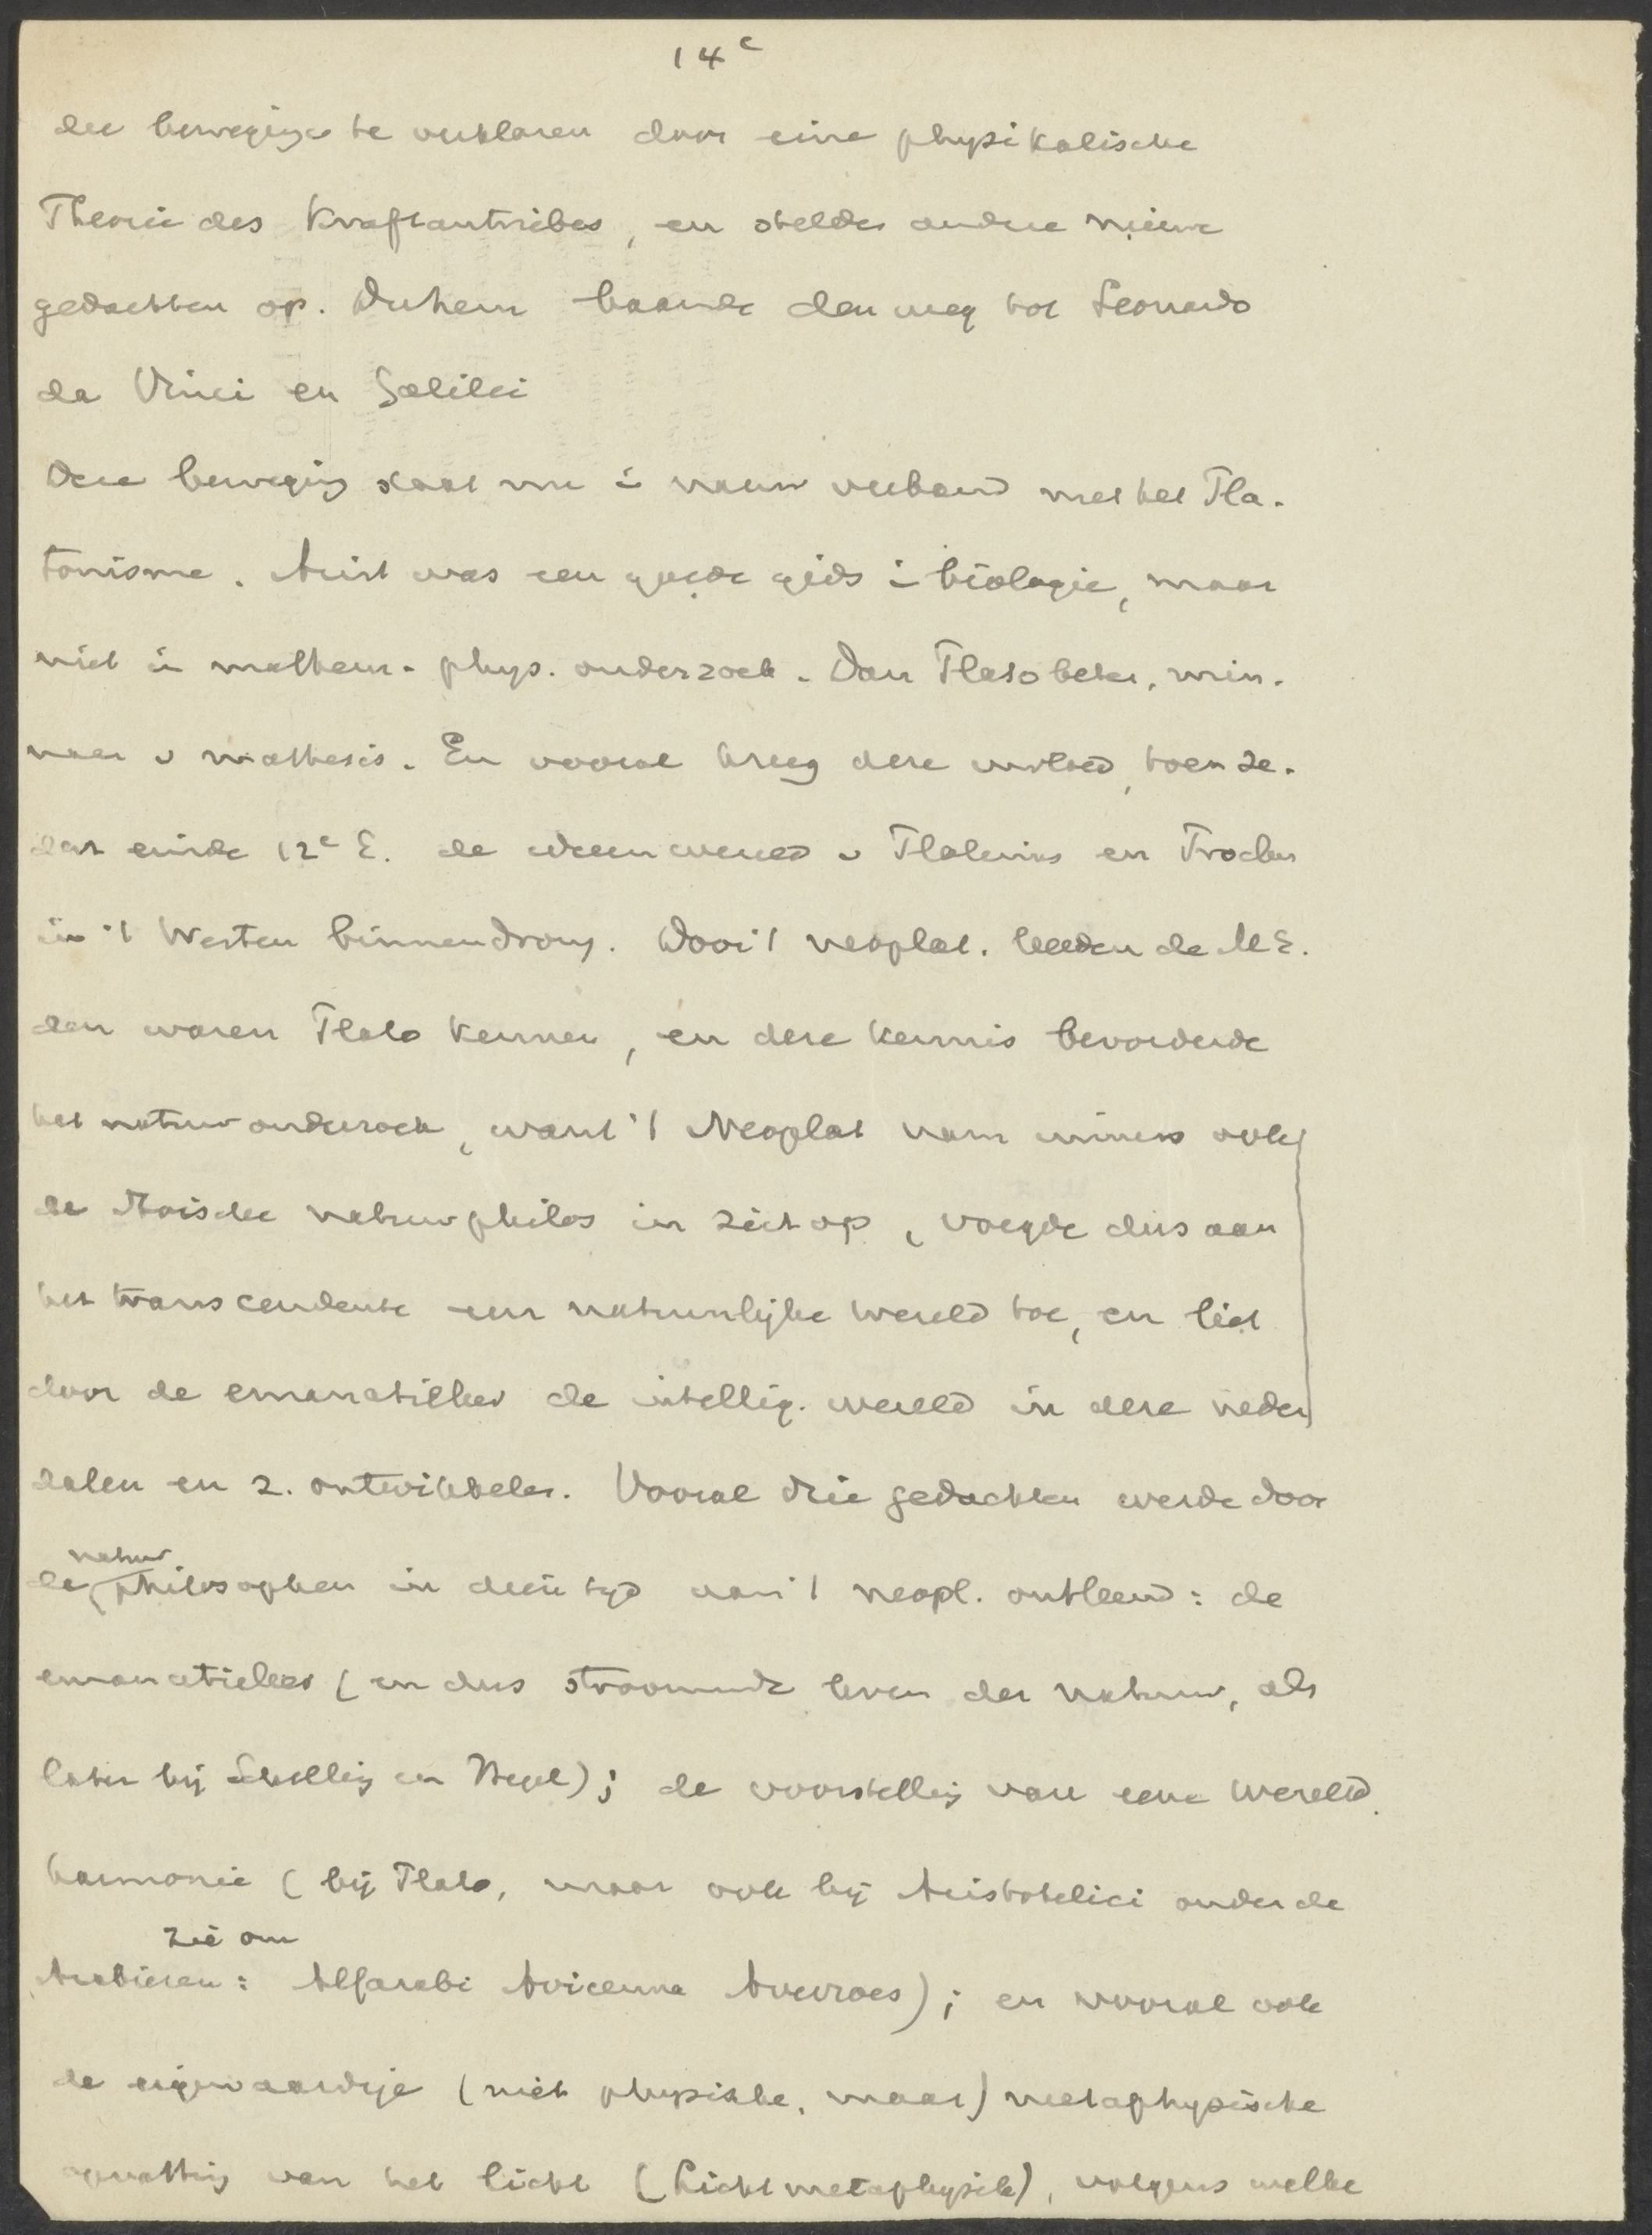 14c
der bewegingen te verklaren door eine physikalische
Theorie des Kraftantriebes, en stelde andere nieuwe
gedachten op. Duhem baande den weg tot Leonardo
da Vinci en Galilei
Deze beweging staat nu in nauw verband met het Pla-
tonisme. Arist was een goede gids in biologie, maar
niet in mathem- phys. onderzoek. Dan Plato beter, min-
naar v mathesis. En vooral kreeg deze invloed, toen se-
dert einde 12e E. de ideeenwereld v Plotinus en Proclus
in 't Westen binnendrong. Door 't neoplat. leerden de M E.
den waren Plato kennen, en deze kennis bevorderde
het natuuronderzoek, want 't Neoplat nam immers ook
de stoische natuurphilos in zich op, voegde dus aan
het transcendente een natuurlijke wereld toe, en liet
door de emanatieleer de intellig. wereld in deze neder
dalen en z. ontwikkelen. Vooral drie gedachten werden door
de natuurphilosophen in dien tijd van 't neopl. ontleend: de
emanatieleer (en dus stroomende leven der natuur, als
later bij Schelling en Hegel); de voorstelling van eene wereld
harmonie (bij Plato, maar ook bij Aristotelici onder de
zie om
Arabieren: Alfarabi Avicenna Averroes); en vooral ook
de eigenaardige (niet physische, maar) metaphysische
opvatting van het licht (Lichtmetaphysik), volgens welke